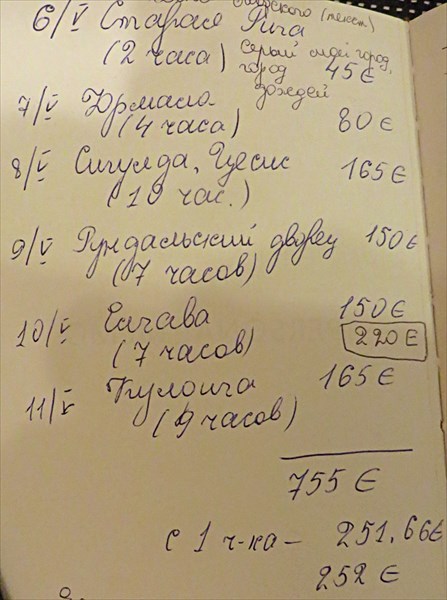 6/V Старая Рига
(2 часа) Серый слой город,
город
дождей
45€
7/V Юрмала 80€
(4 часа)
8/V Сигулда, Цесис 165€
(10 час.)
9/V Рундальский дворец 150€
(7 часов)
10/V Елгава 150€
(7 часов) 220€
11/V Кулдига 165€
(9 часов)
755 €
с 1 ч-ка – 251,66€
252 €